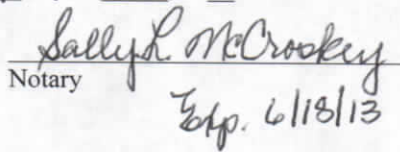 Sally L. McCroskey
Notary
Exp. 6/18/13